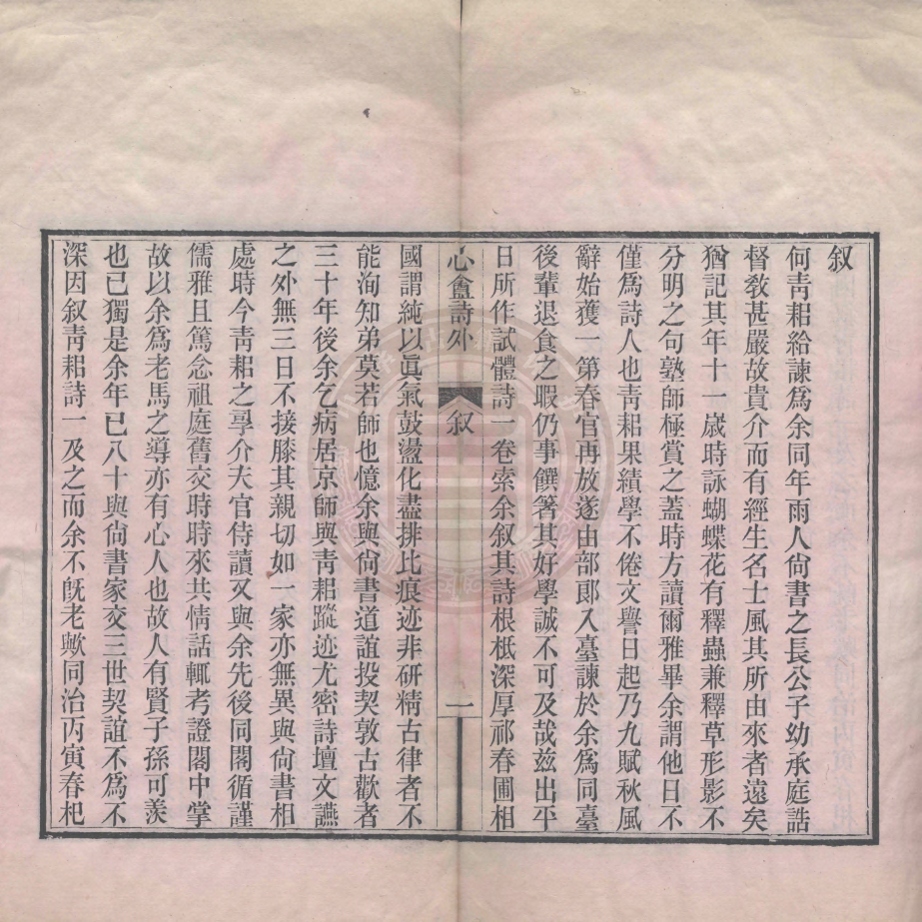 叙
何青耜給諫爲余同年雨人尙書之長公子幼承庭誥
督敎甚嚴故貴介而有經生名士風其所由來者遠矣
猶記其年十一歲時詠蝴蝶花有釋蟲兼釋草形影不
分明之句塾師極賞之蓋時方讀爾雅畢余謂他日不
僅爲詩人也靑耜果績學不倦文譽日起乃九賦秋風
辭始獲一第春官再放遂由部郞入臺諫於余爲同臺
後輩退食之暇仍事饌箸其好學誠不可及哉兹出平
日所作試體詩一卷索余叙其詩根柢深厚祁春圃相
心盦詩外
叙
一
國謂純以眞氣鼓盪化盡排比痕迹非硏精古律者不
能洵知弟莫若師也憶余與尙書道誼投契敦古歡者
三十年後余乞病居京師與靑耜蹤迹尤密詩壇文讌
之外無三日不接膝其親切如一家亦無異與尙書相
處時今靑耜之尋介夫官侍讀又與余先後同閣循謹
儒雅且篤念祖庭舊交時時來共情話輒考證閣中掌
故以余爲老馬之導亦有心人也故人有賢子孫可羨
也已獨是余年已八十與尙書家交三世契誼不爲不
深因叙靑耜詩一及之而余不旣老歟同治丙寅春杞